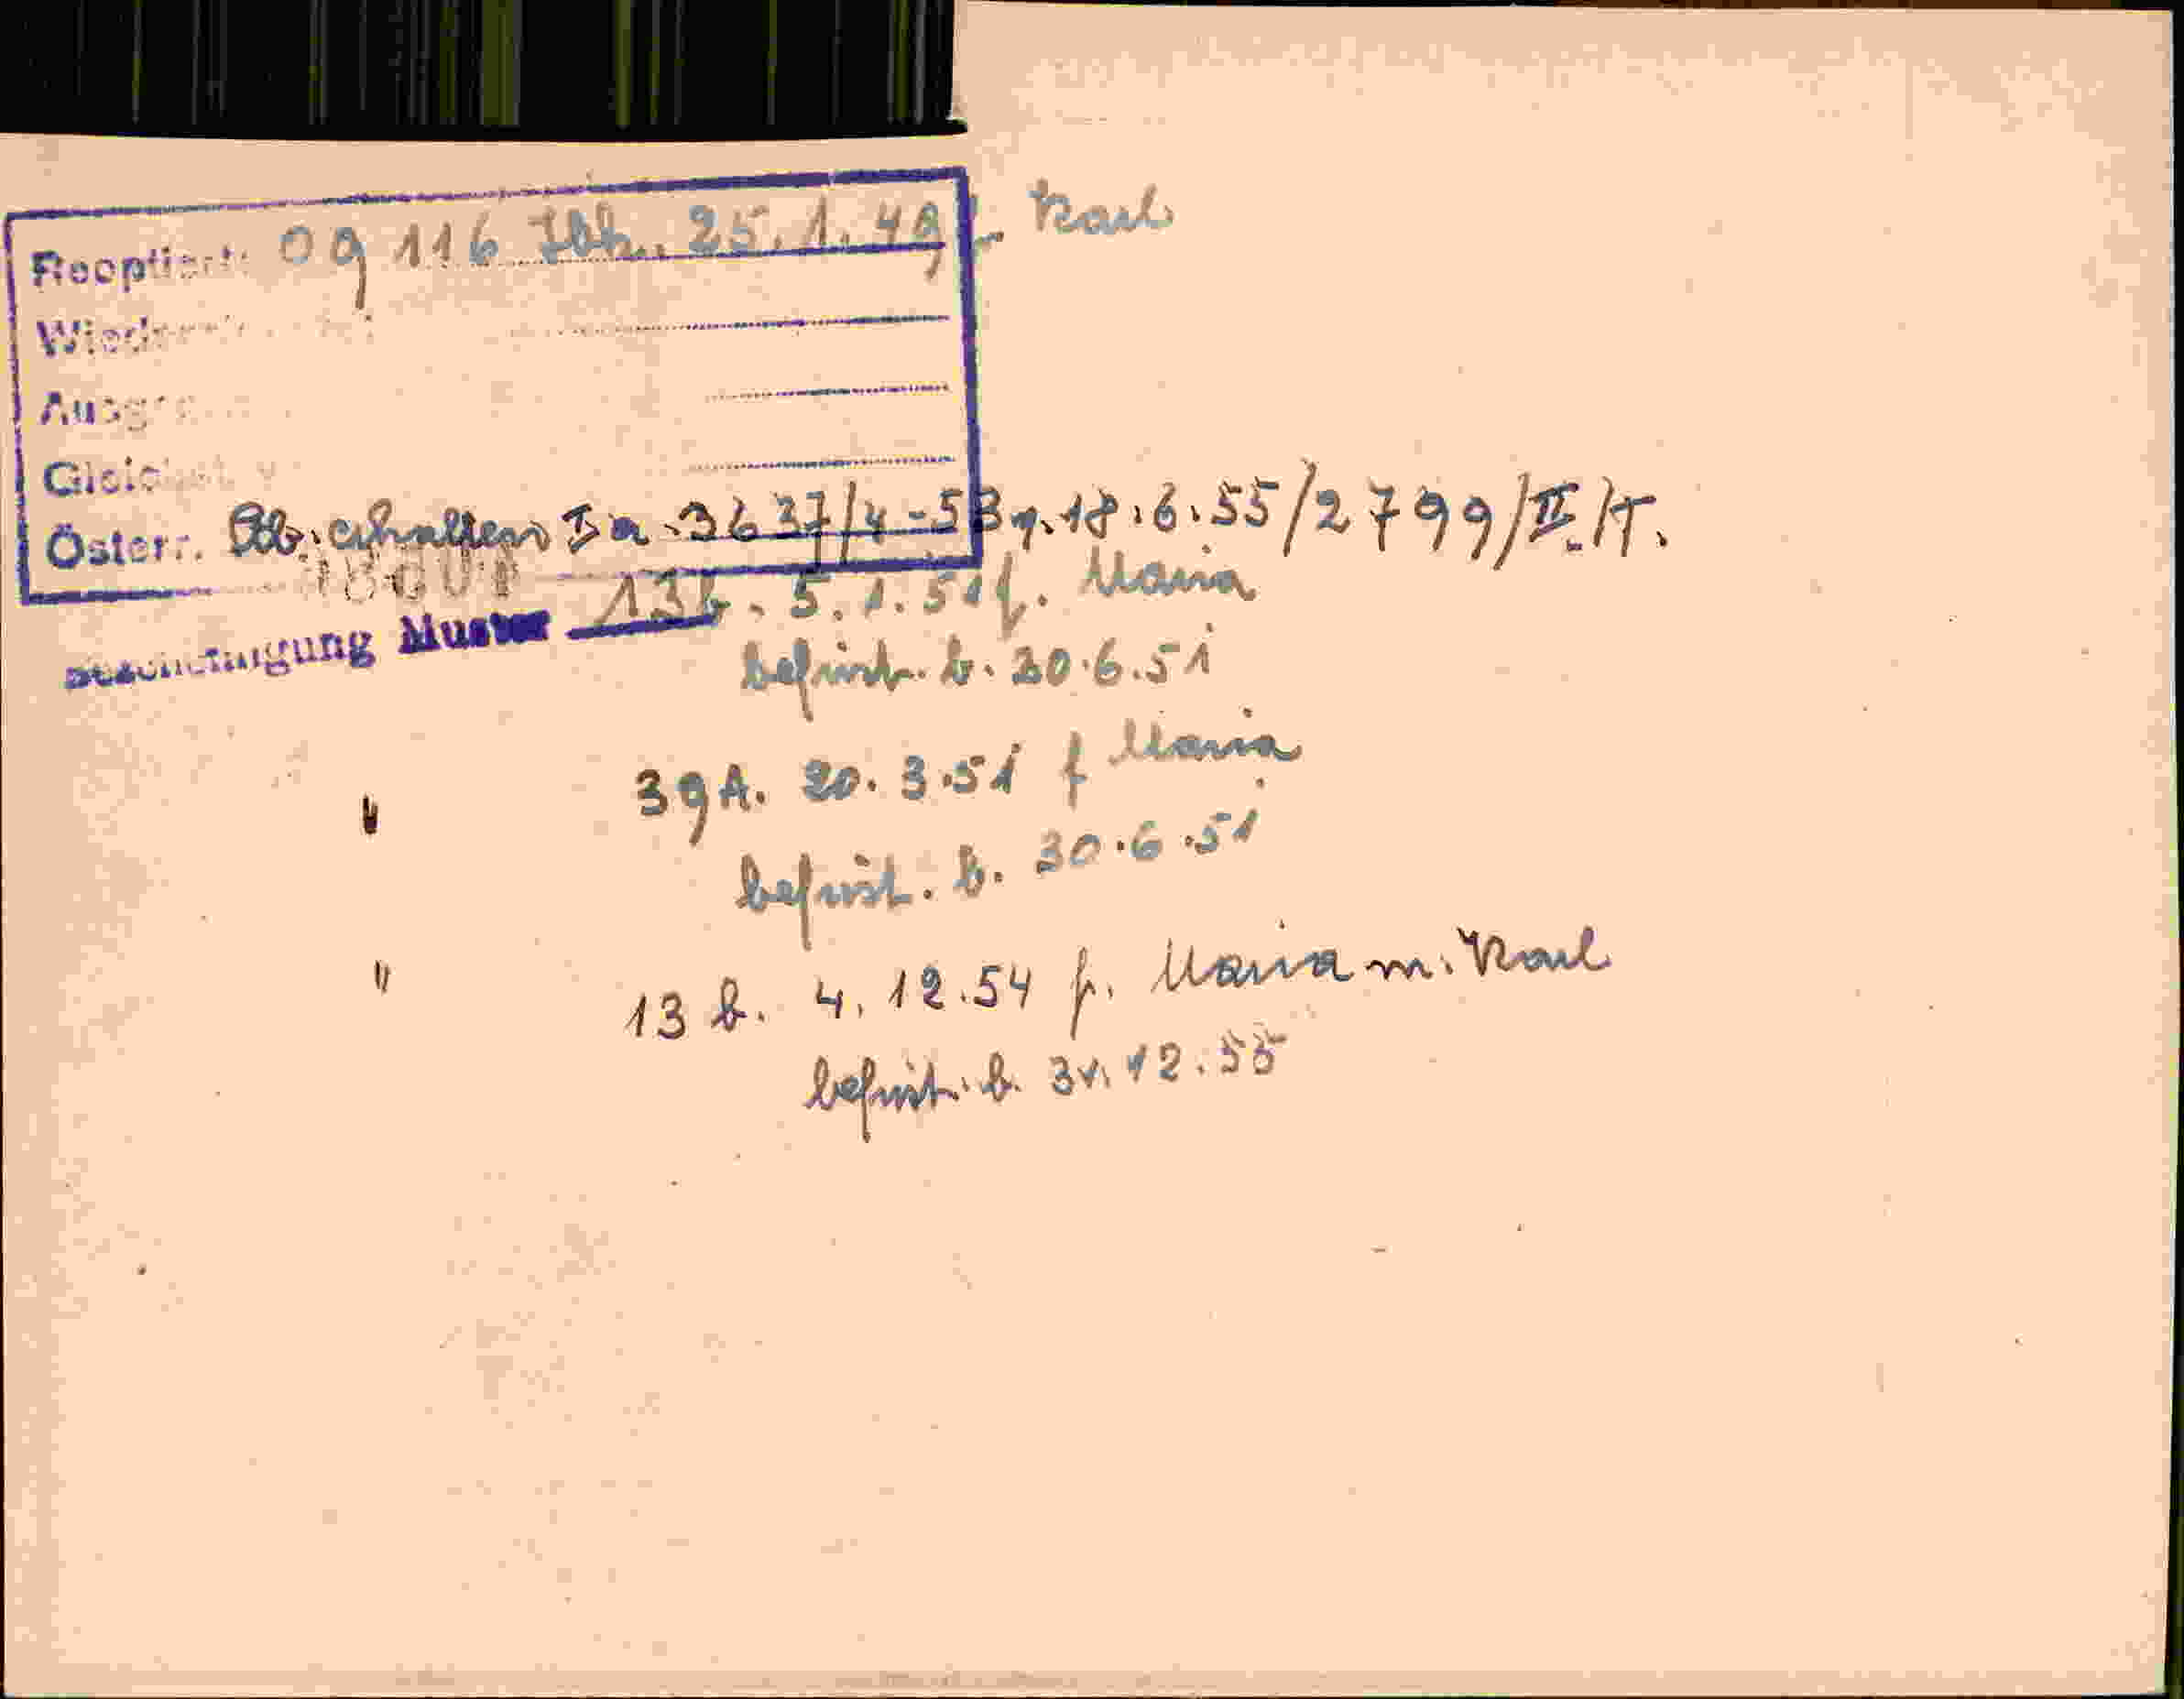 Reoptiert: 09 116 Jbk. 25.1.49 f. Karl
Österr. Stb. erhalten Ia-3637/4-53 v. 18.6.55/2799/II/T.
13b. 5.1.51 f. Maria
Bescheinigung Muster
befrist. b. 30.6.51
" 39A. 20.3.51 f Maria
befrist. b. 30.6.51
" 13 b. 4.12.54 f. Maria m. Karl
befrist. b. 31.12.55